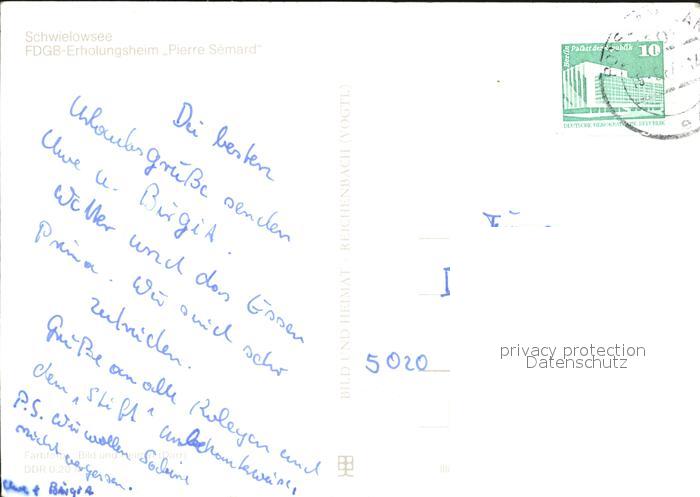 Schwielowsee
FDGB-Erholungsheim „Pierre Sémard"
Berlin Palast der Republik 10
DEUTSCHE DEMOKRATISCHE REPUBLIK
Die besten
Urlaubsgrüße senden
Uwe u. Birgit.
Wetter und das Essen
Prima. Wir sind sehr
zufrieden.
Grüße an alle Kolegen und
dem „Stift" unbekannterweise,
P.S. Wir wollen Sabine
nicht vergessen.
Uwe + Birgit
BILD UND HEIMAT REICHENBACH (VOGTL)
5020
privacy protection
Datenschutz
DDR 0,20